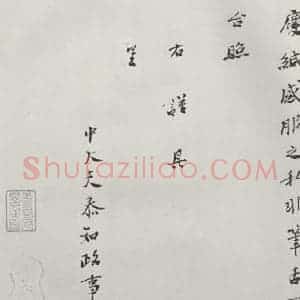 慶緘感服之私非筆由
台照
右謹具
呈
中大夫參知政事
Shufaziliao.com